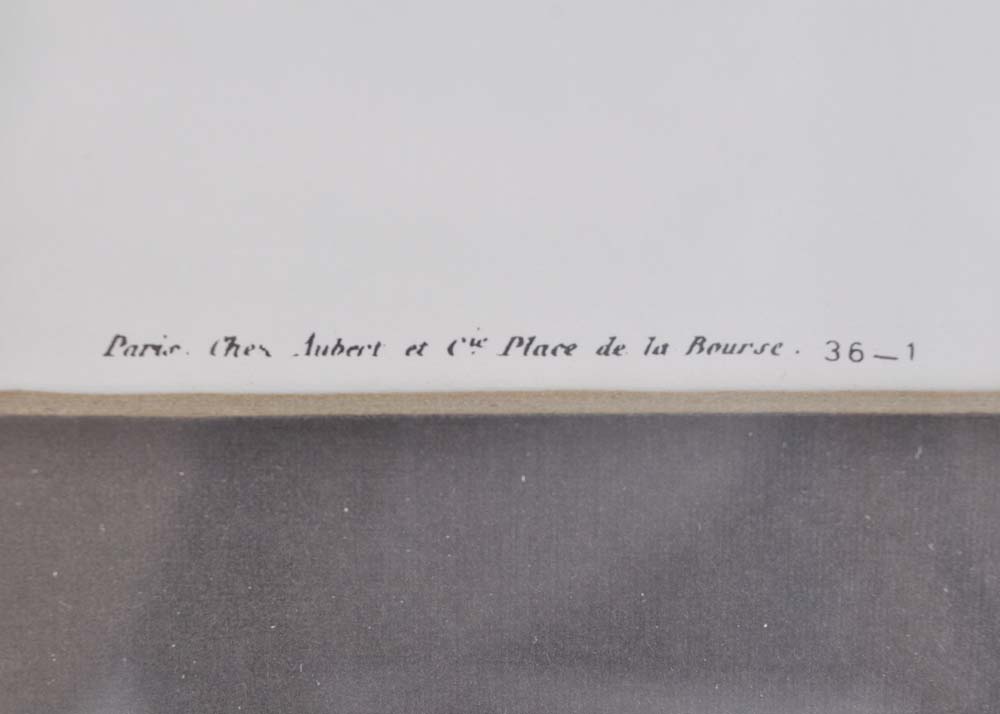 Paris. Chez Aubert et Cie Place de la Bourse. 36-1